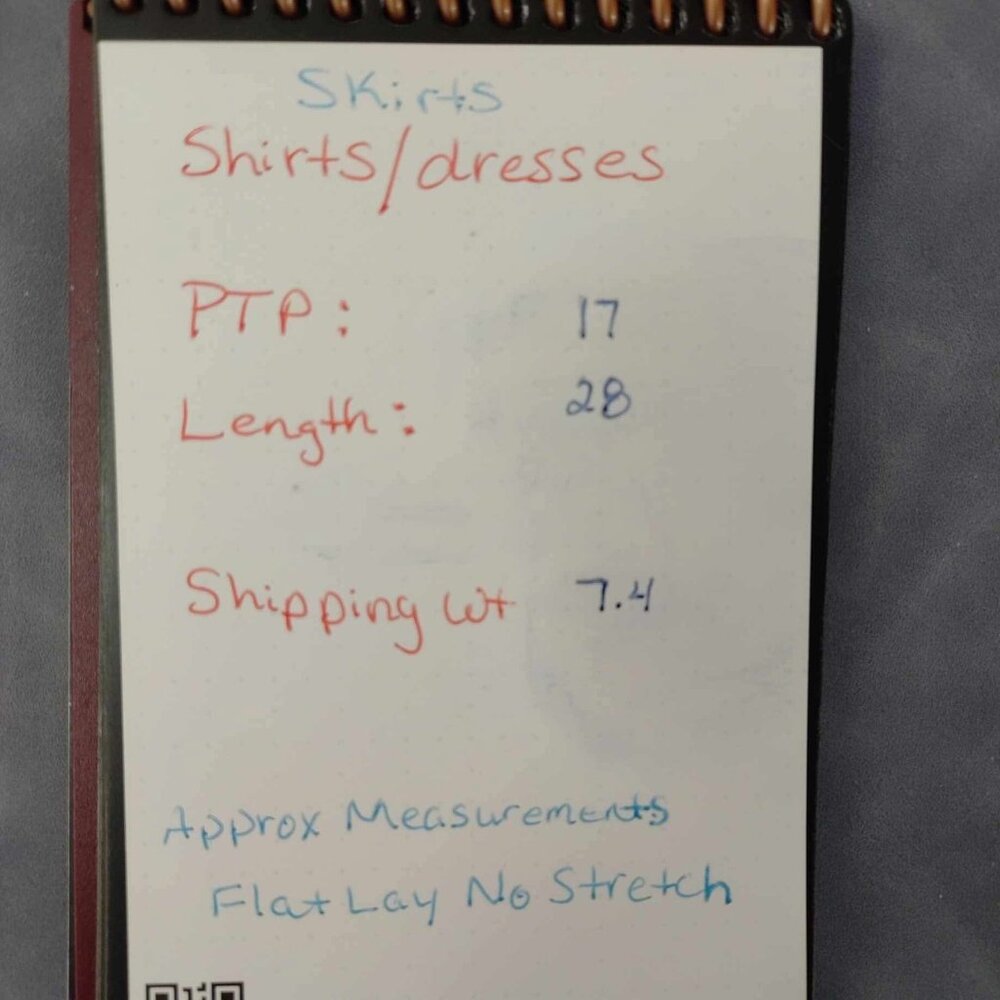 Skirts
Shirts/dresses
PTP: 17
Length: 28
Shipping wt 7.4
Approx Measurements
Flat Lay No Stretch